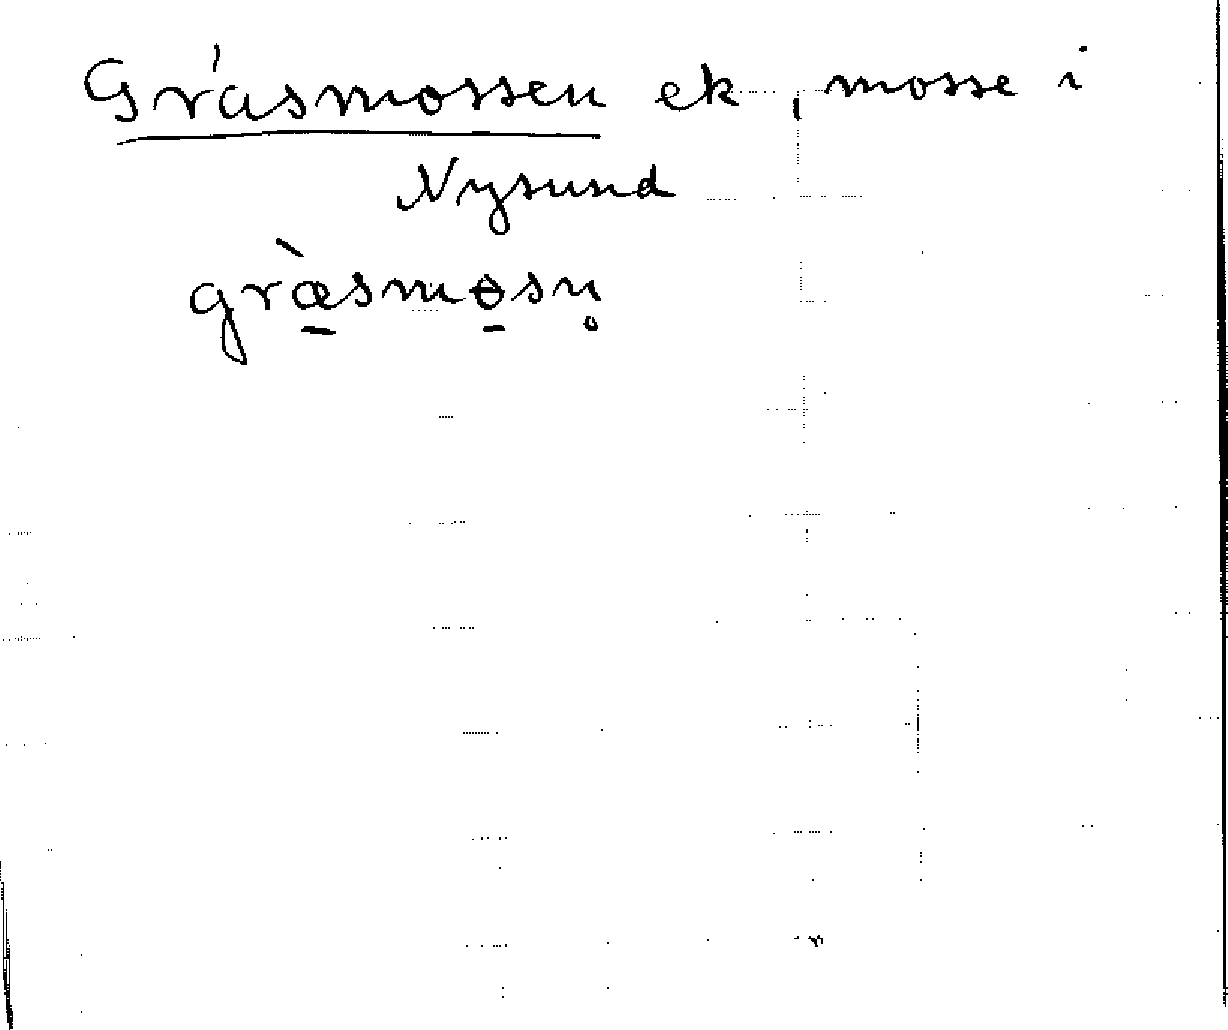 Gräsmossen ek, mosse i
Nysund
græ̱̀smɵ̱sn̥